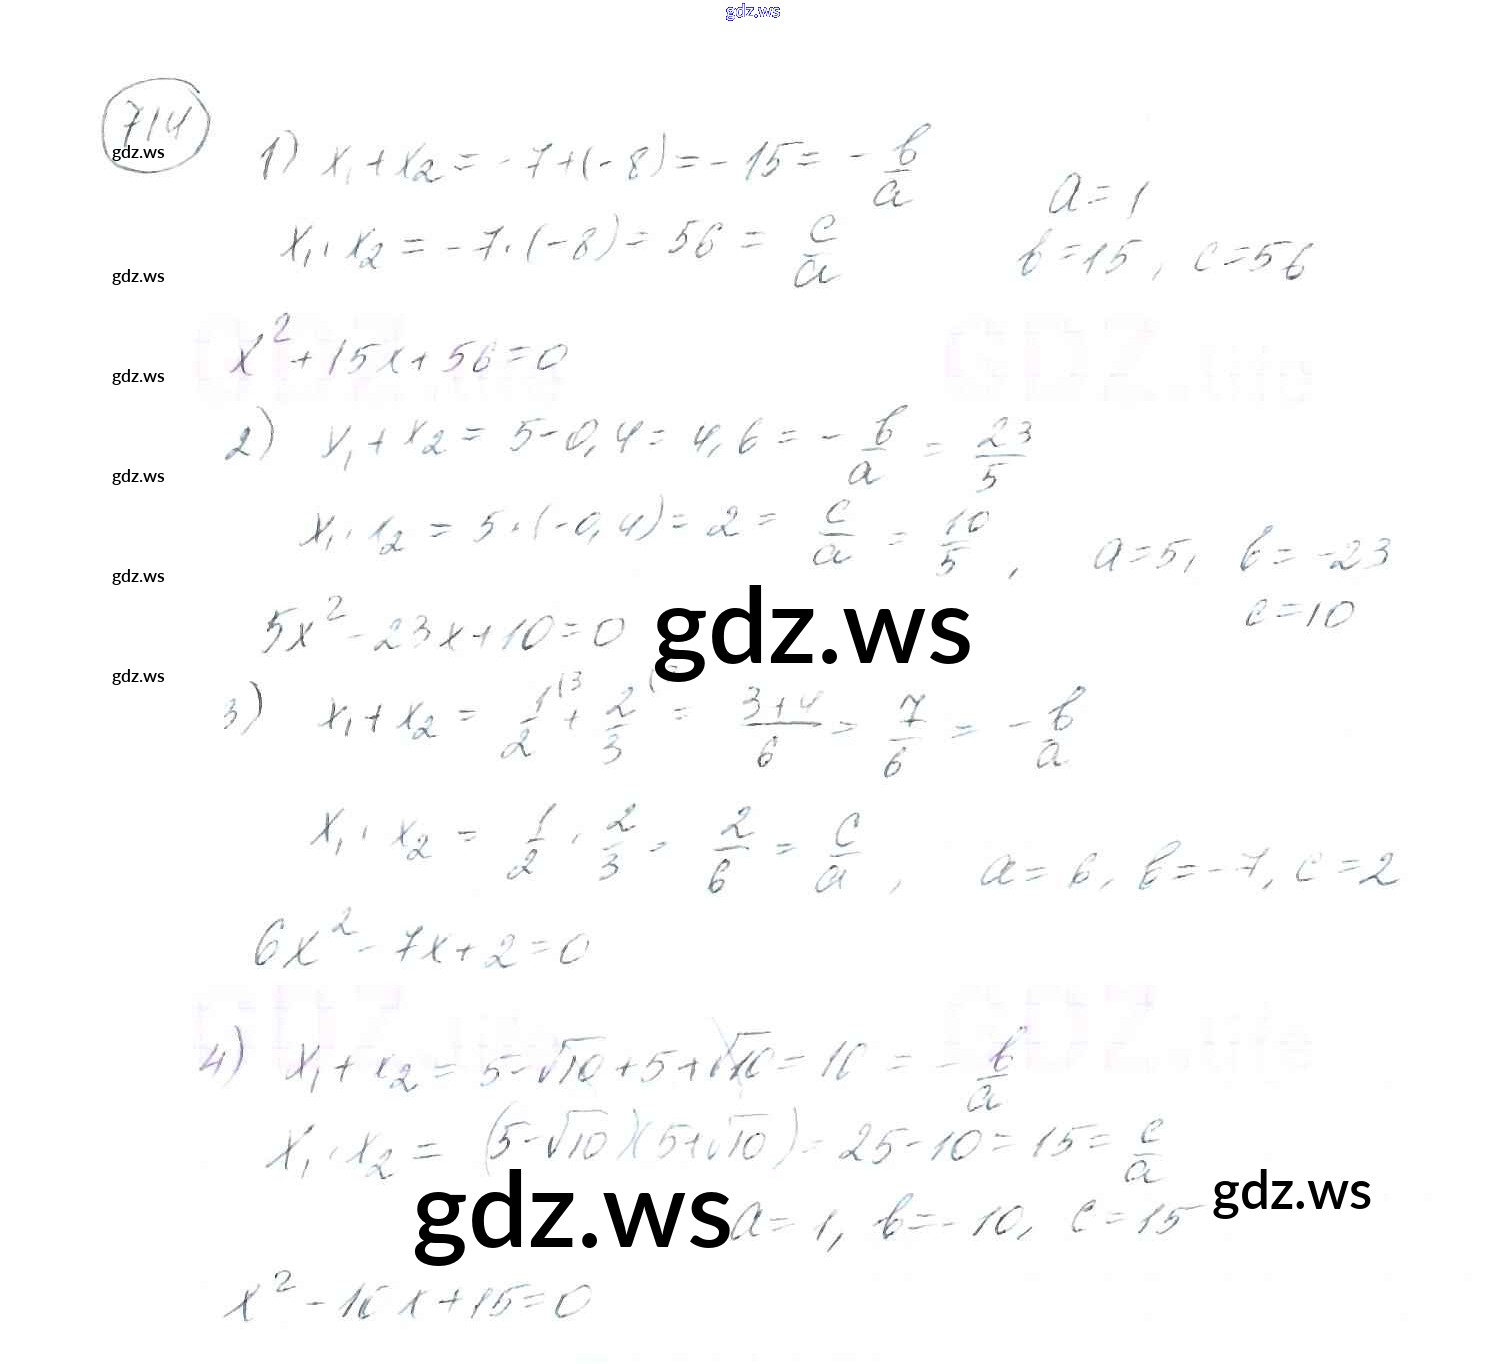 gdz.ws
714
gdz.ws
1) x₁ + x₂ = -7 + (-8) = -15 = - b/a
a = 1
x₁ · x₂ = -7 · (-8) = 56 = c/a
b = 15, c = 56
gdz.ws
x² + 15x + 56 = 0
gdz.ws
2) x₁ + x₂ = 5 - 0,4 = 4,6 = - b/a = 23/5
gdz.ws
x₁ · x₂ = 5 · (-0,4) = 2 = c/a = 10/5, a = 5, b = -23
c = 10
gdz.ws
5x² - 23x + 10 = 0
gdz.ws
gdz.ws
3) x₁ + x₂ = 1/2 (3 + 2/3 ( = 3+4/6 = 7/6 = - b/a
x₁ · x₂ = 1/2 · 2/3 = 2/6 = c/a, a = 6, b = -7, c = 2
6x² - 7x + 2 = 0
4) x₁ + x₂ = 5 - √10 + 5 + √10 = 10 = - b/a
x₁ · x₂ = (5 - √10)(5 + √10) = 25 - 10 = 15 = c/a
gdz.ws
a = 1, b = -10, c = 15
gdz.ws
x² - 10x + 15 = 0
GDZ.life
GDZ.life
GDZ.life
GDZ.life